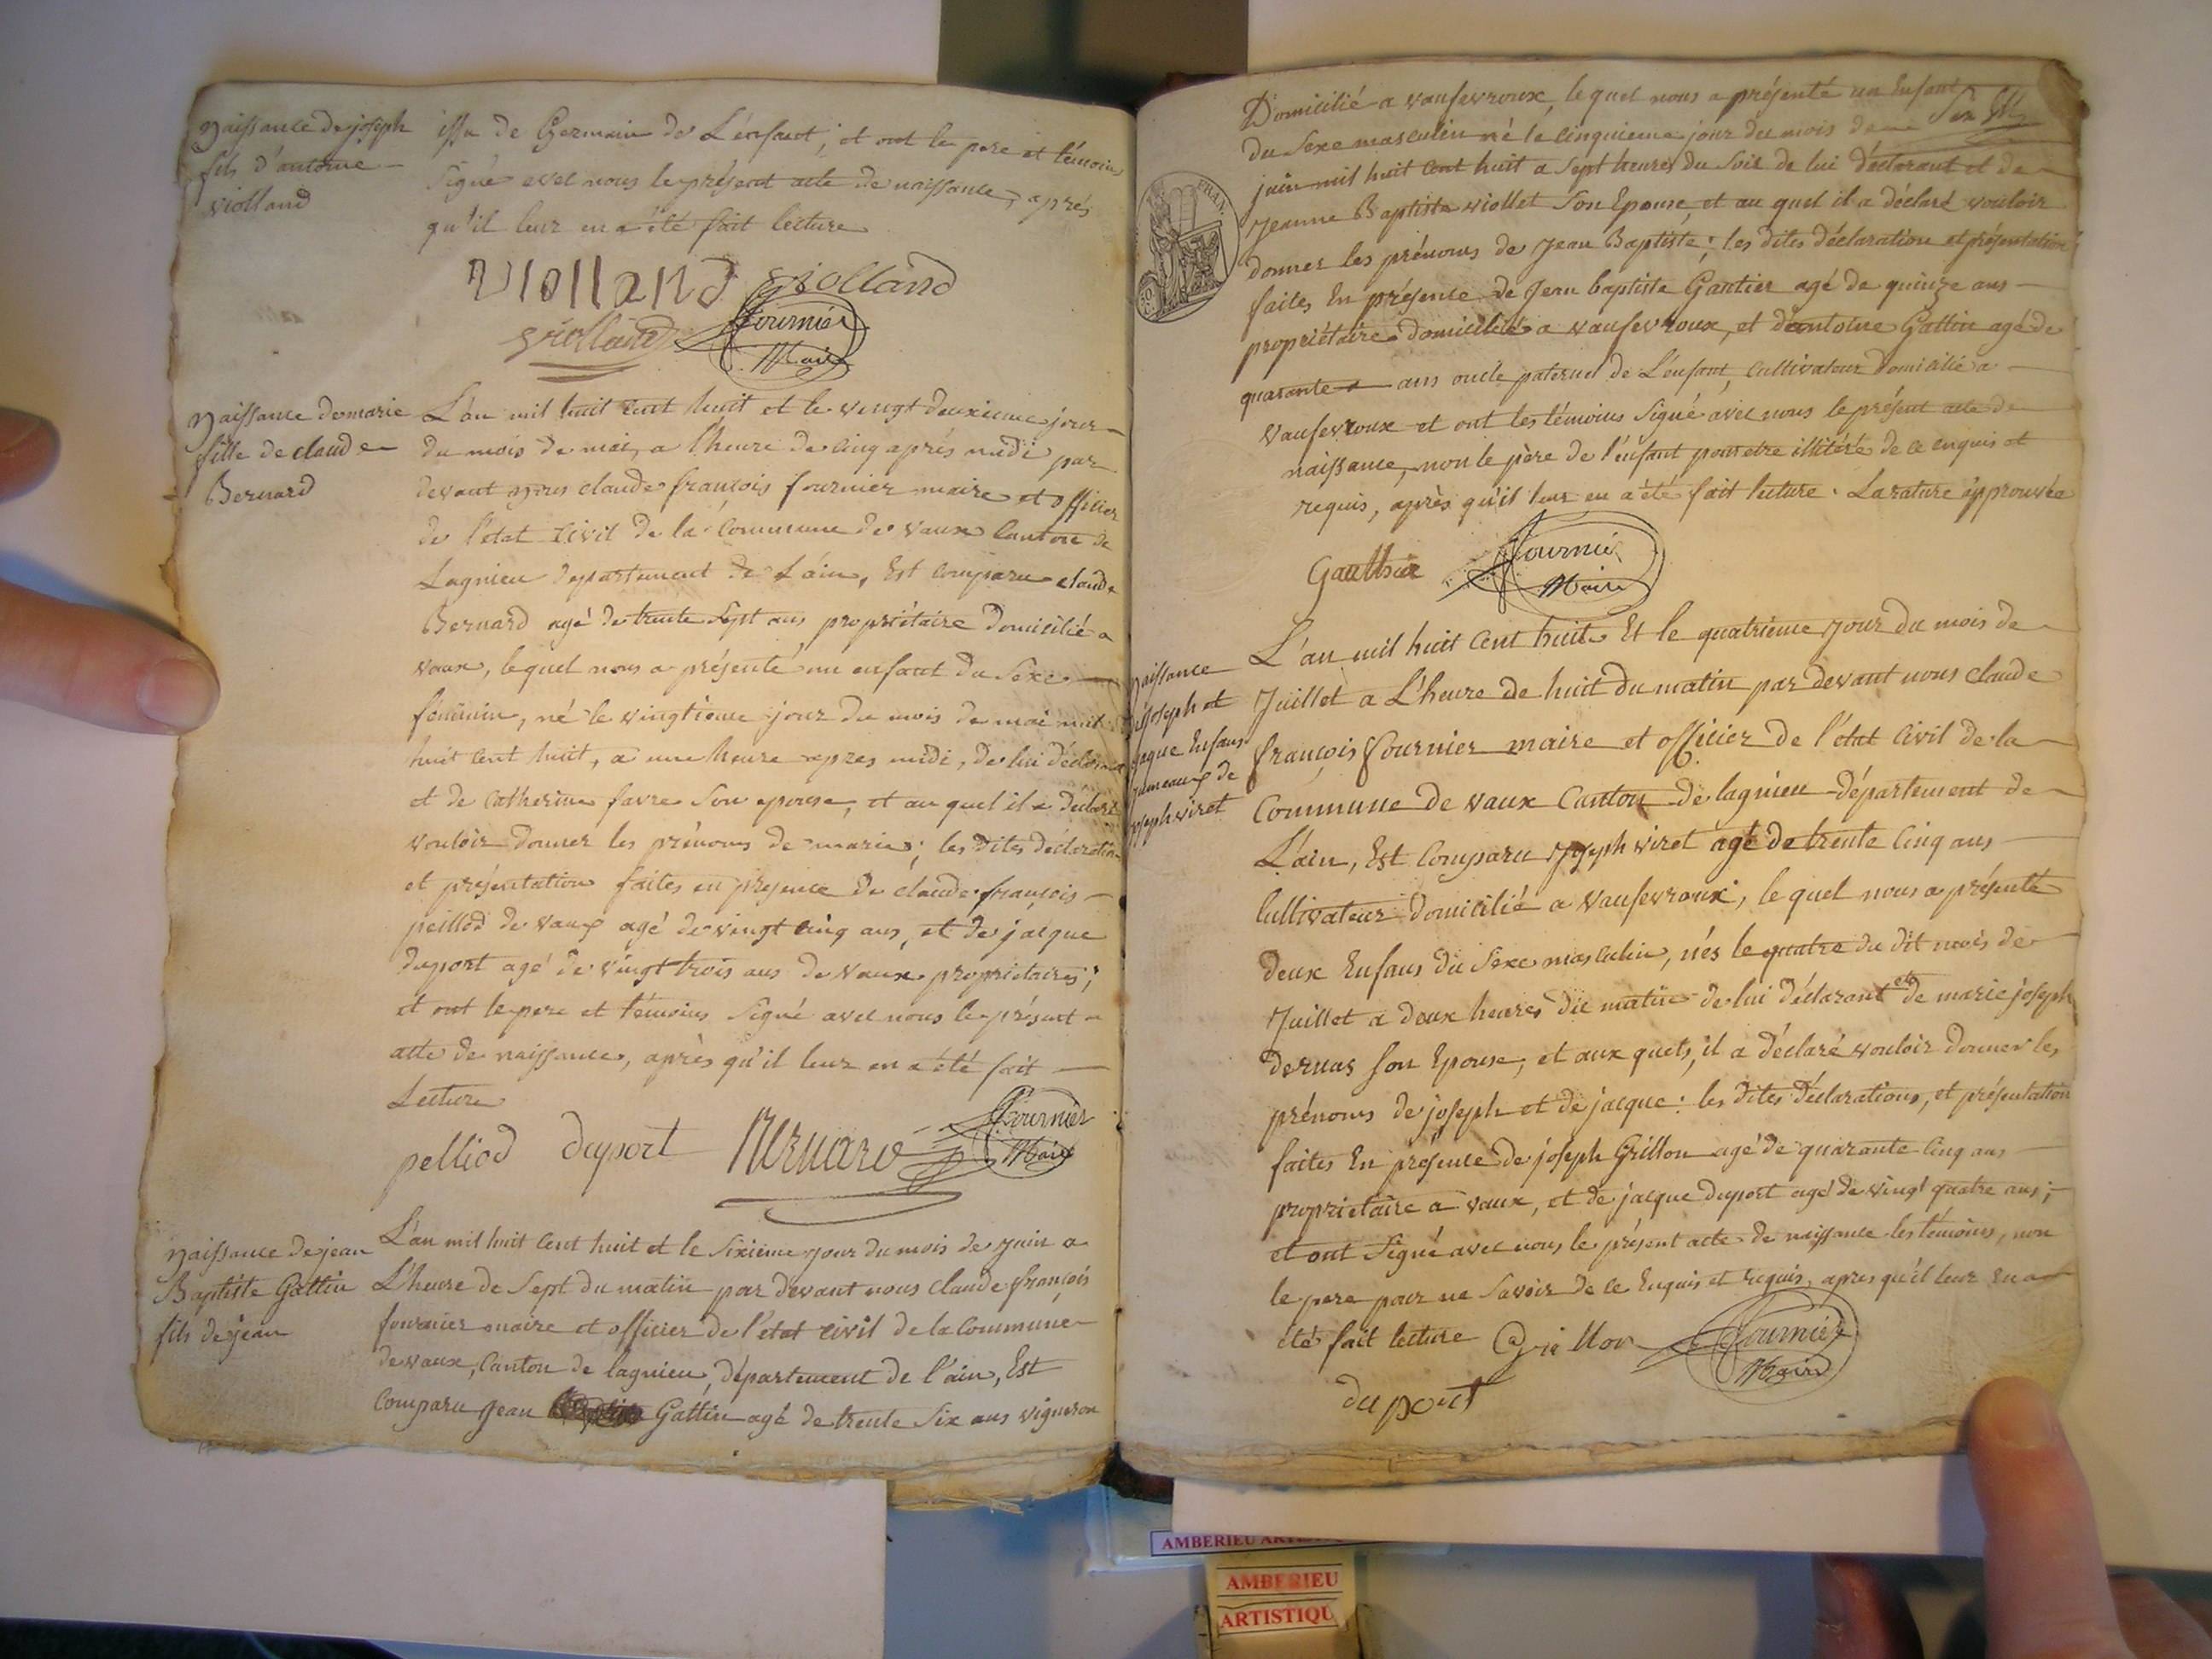 Naissance de joseph
fils d'antoine
violland
issu de Germain de L'enfant, et ont le pere et témoins
signé avec nous le présent acte de naissance, après
qu'il leur en a été fait lecture
violland violland
violland fournier
Maire
Naissance de marie
fille de claude
Bernard
L'an mil huit cent huit et le vingt deuxieme jour
du mois de mai, a l'heure de cinq après midi par
devant nous claude françois fournier maire et officier
de l'état civil de la Commune de vaux Canton de
Lagnieu departement de L'ain, Est comparu claude
Bernard agé de trente sept ans propriétaire domicilié a
vaux, lequel nous a présenté un enfant du sexe
féminin, né le vingtieme jour du mois de mai mil
huit cent huit, a une heure apres midi, de lui déclarant
et de catherine favre son epouse, et au quel il a declaré
vouloir donner les prénoms de marie; les dites déclaration
et présentation faites en presence de claude françois
peillod de vaux agé de vingt cinq ans, et de jacque
duport agé de vingt trois ans de vaux proprietaires;
et ont le pere et témoins signé avec nous le présent
acte de naissance, après qu'il leur en a été fait
Lecture
pelliod duport Bernard fournier
Maire
Naissance de jean
Baptiste Gattin
fils de jean
L'an mil huit cent huit et le sixieme jour du mois de juin a
L'heure de sept du matin par devant nous claude françois
fournier maire et officier de l'etat civil de la commune
de vaux, Canton de lagnieu, département de l'ain, Est
comparu jean Gattin agé de trente six ans vigneron
Domicilié a vaufevroux, le quel nous a présenté un Enfant
du sexe masculin né le cinquieme jour du mois de
juin mil huit cent huit a sept heures du soir de lui déclarant et de
jeanne Baptiste viollet son Epouse, et au quel il a déclaré vouloir
donner les prénoms de jean Baptiste; les dites déclaration et présentation
faites En présence de jean baptiste Gautier agé de quinze ans
propriétaire domicilié a vaufevroux, et d'antoine Gattin agé de
quarante ans oncle paternel de L'enfant, cultivateur domicilié a
vaufevroux et ont les témoins signé avec nous le présent acte de
naissance, non le père de l'enfant pour etre illitéré de ce enquis et
requis, après qu'il leur en a été fait lecture. La rature approuvée
FRAN.
Gauthier fournier
Maire
naissance
de joseph et
jacque Enfans
jumeaux de
joseph viret
L'an mil huit cent huit Et le quatrieme jour du mois de
Juillet a L'heure de huit du matin par devant nous claude
françois fournier maire et officier de l'état civil de la
commune de vaux Canton de lagnieu département de
L'ain, Est comparu joseph viret agé de trente cinq ans
cultivateur domicilié a vaufevroux, le quel nous a présenté
deux Enfans du sexe masculin, nés le quatre du dit mois de
Juillet a deux heures du matin de lui déclarant et de marie joseph
dernas son Epouse, et aux quels, il a déclaré vouloir donner les
prénoms de joseph et de jacque: les dites déclarations, et présentation
faites En présence de joseph Grillon agé de quarante cinq ans
proprietaire a vaux, et de jacque duport agé de vingt quatre ans;
et ont signé avec nous le présent acte de naissance les témoins, non
le pere pour ne savoir de ce Enquis et requis, apres qu'il leur En a
été fait lecture Grillon fournier
Maire
duport
AMBERIEU
AMBERIEU
ARTISTIQU